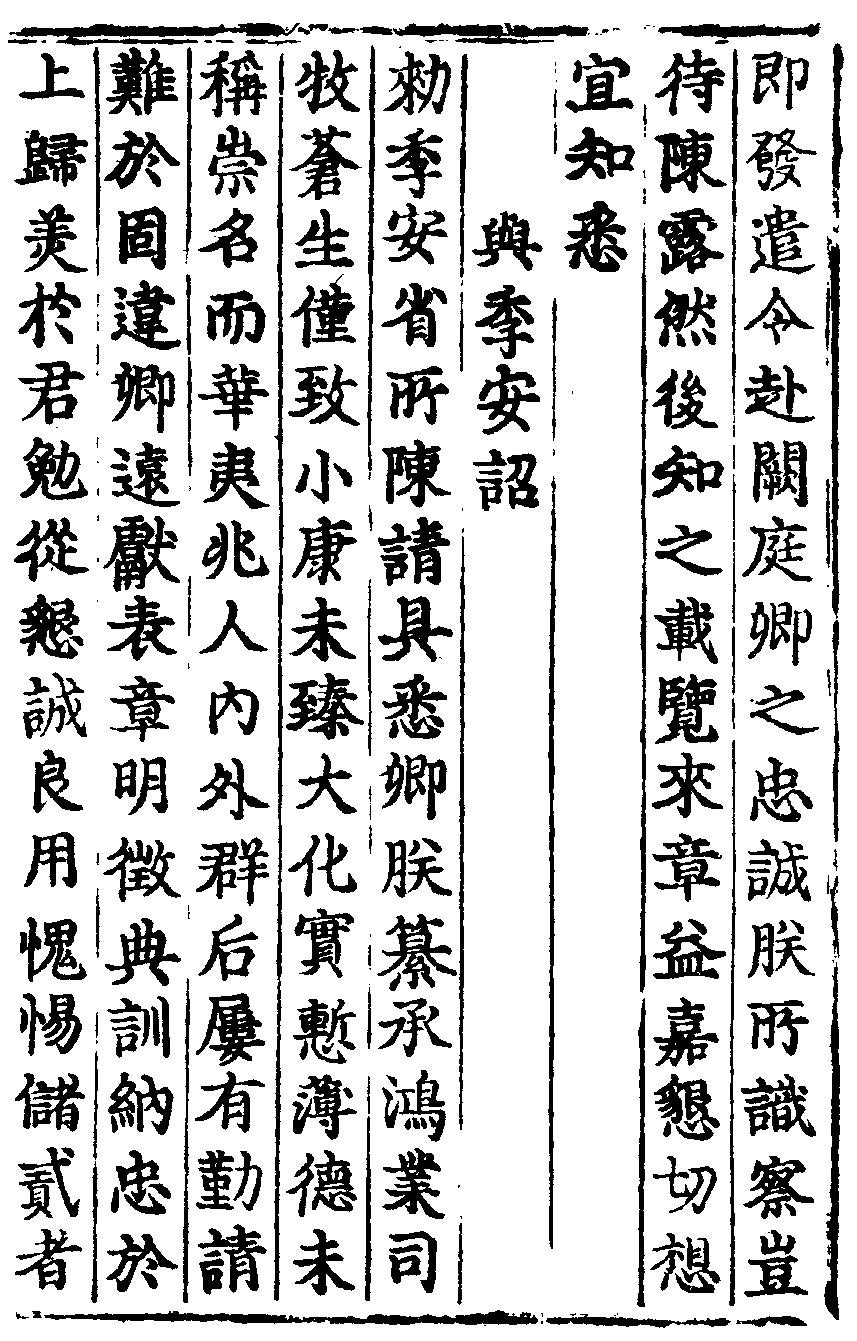 即發遣令赴闕庭卿之忠誠朕所識察豈
待陳露然後知之載覽來章益嘉懇切想
宜知悉
與季安詔
勑季安省所陳請具悉卿朕纂承鴻業司
牧蒼生僅致小康未臻大化實慙薄德未
稱崇名而華夷兆人內外群后屢有勤請
難於固違卿遠獻表章明徵典訓納忠於
上歸羙於君勉從懇誠良用愧惕儲貳者